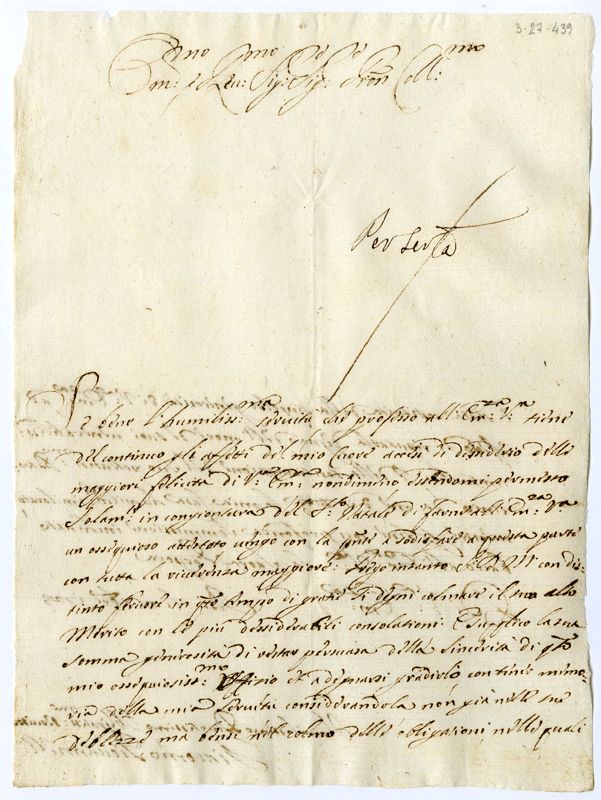 3-27-439
Em:no e Reu:mo Sig:re Sig:re Pron Coll:mo
Per ler[...]a
Se bene l'humiliss:ma seruitù che professo all'Em:za V:ra tiene
del continuo gli affetti del mio Cuore accesi di desiderio delle
maggiori felicità di V:ra Em:za nondimeno essendomi permesso
solam:te in congiontura del S:to Natale di farne all'Em:za V:ra
un ossequioso attestato uengo con la pnte a sodisfare a questa parte
con tutta la riuerenza maggiore: Prego intanto S. D. M. con dis:
tinto feruore in qto tempo di gratie si degni colmare il suo alto
Merito con le più desiderabili consolationi: E suplico la sua
somma generosità di restar persuasa della sincerità di qto
mio ossequiosiss:mo Offizio et a
con tener memo:
ria della mia Seruitù considerandola non già nelle sue
debolezze ma bensì nel colmo delle obligationi, nelle quali